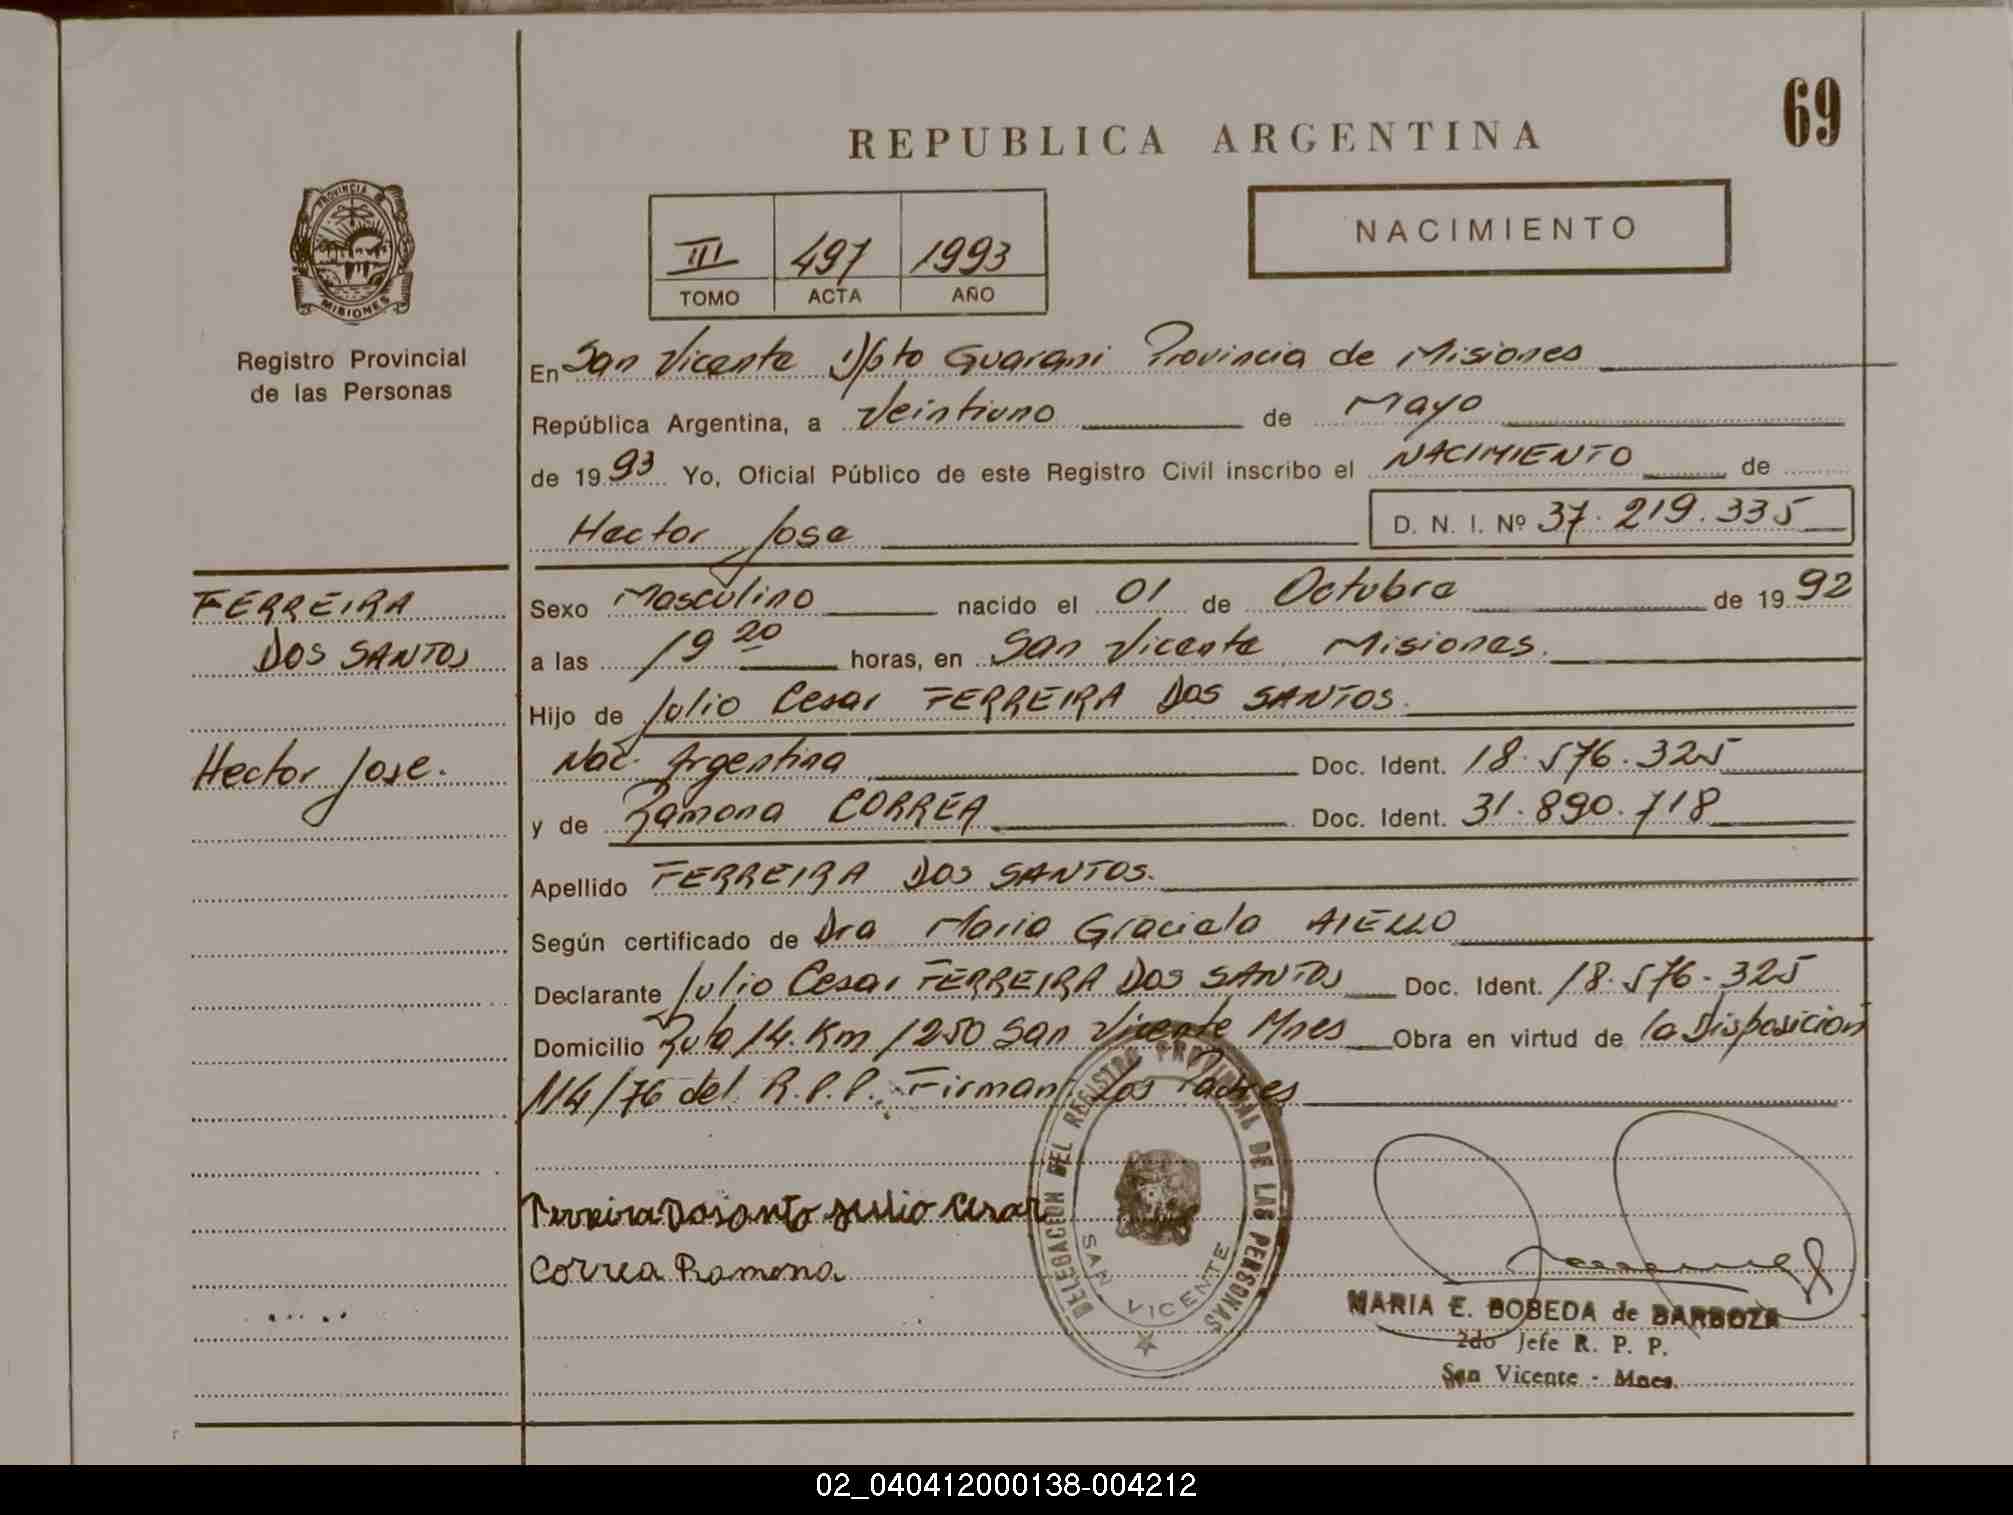 69
REPUBLICA ARGENTINA
PROVINCIA DE
MISIONES
Registro Provincial
de las Personas
NACIMIENTO
III 497 1993
TOMO ACTA AÑO
En San Vicente Dpto Guarani Provincia de Misiones
República Argentina, a Veintiuno de Mayo
de 1993 Yo, Oficial Público de este Registro Civil inscribo el NACIMIENTO de
Hector Jose D. N. I. Nº 37.219.335
FERREIRA
DOS SANTOS
Hector Jose.
Sexo Masculino nacido el 01 de Octubre de 1992
a las 19 20 horas, en San Vicente Misiones.
Hijo de Julio Cesar FERREIRA DOS SANTOS.
Nac. Argentina Doc. Ident. 18.576.325
y de Ramona CORREA Doc. Ident. 31.890.718
Apellido FERREIRA DOS SANTOS.
Según certificado de Dra Maria Graciela AIELLO
Declarante Julio Cesar FERREIRA DOS SANTOS Doc. Ident. 18.576.325
Domicilio Ruta 14. Km 1250 San Vicente Mnes Obra en virtud de la Disposicion
114/76 del R.P.P. Firman Los Padres
Ferreira Dosanto Julio Cesar
Correa Ramona
DELEGACION DEL REGISTRO PROVINCIAL DE LAS PERSONAS
SAN VICENTE
MARIA E. BOBEDA de BARBOZA
2do Jefe R. P. P.
San Vicente - Mnes.
02_040412000138-004212